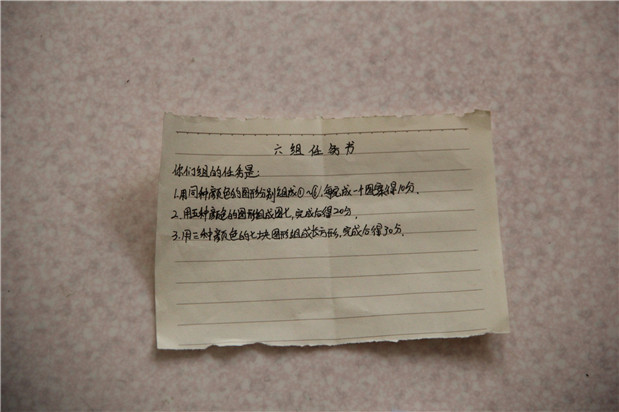 六组任务书
你们组的任务是:
1.用同种颜色的图形分别组成①~⑥,每完成一个图案得10分.
2.用五种颜色的图形组成图七,完成后得20分.
3.用三种颜色的七块图形组成长方形,完成后得30分.